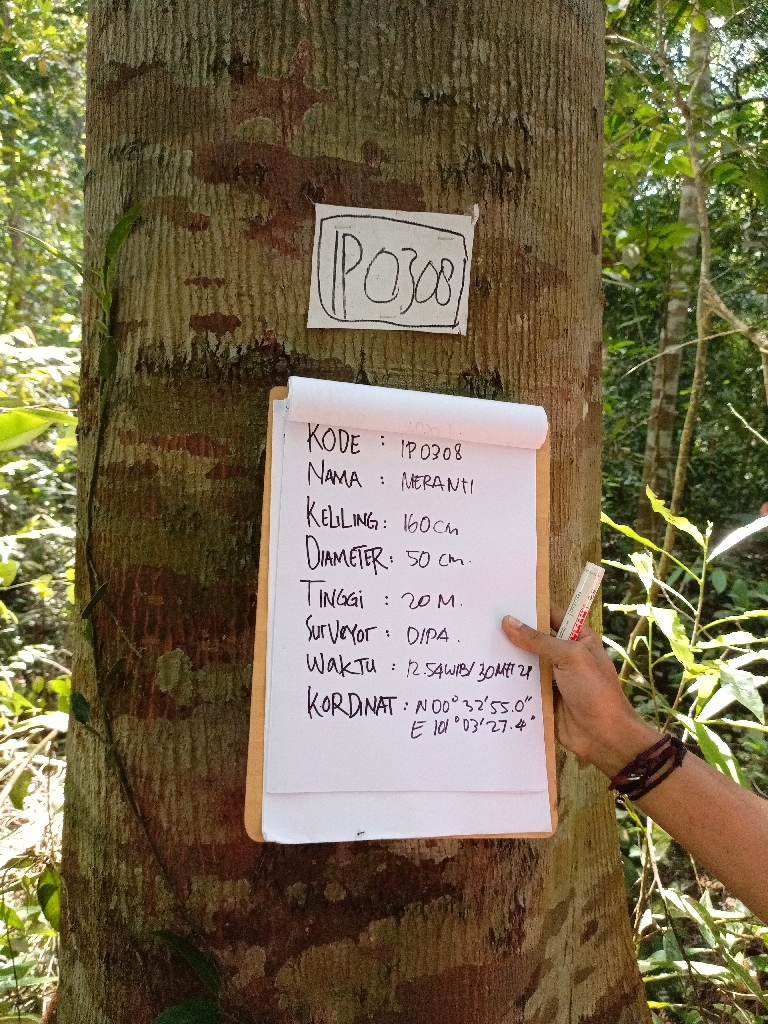 IP0308
KODE : IP0308
NAMA : MERANTI
KELILING : 160 cm
DIAMETER : 50 cm.
TINGGI : 20 M.
SURVEYOR : DIPA.
WAKTU : 12.54WIB/30MEI 24
KORDINAT : N 00° 32' 55.0"
E 101° 03' 27.4"